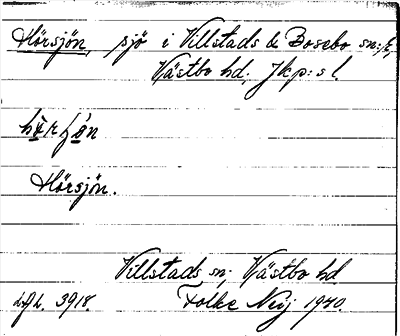 Hörsjön, sjö i Villstads & Bosebo sn:r,
Västbo hd, Jkp:s l.
Hörsjön.
Villstads sn, Västbo hd
3918. Folke Nij 1940.